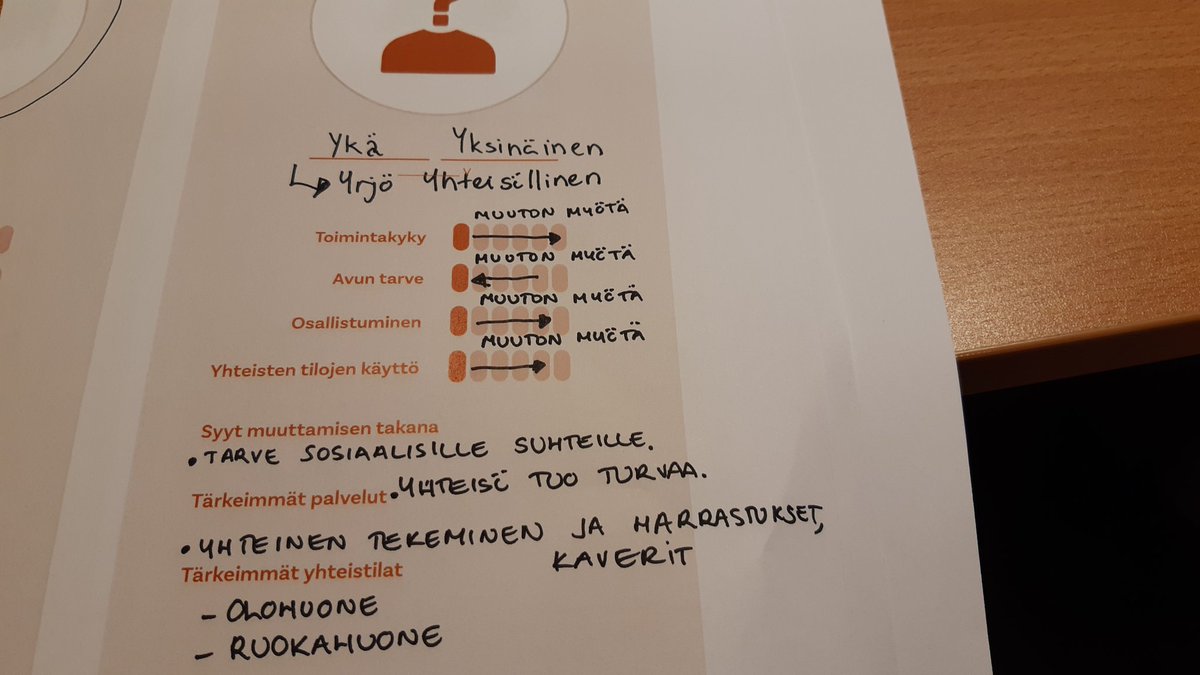 ?
Ykä Yksinäinen
Yrjö Yhteisöllinen
MUUTON MYÖTÄ
Toimintakyky
MUUTON MYÖTÄ
Avun tarve
MUUTON MYÖTÄ
Osallistuminen
MUUTON MYÖTÄ
Yhteisten tilojen käyttö
Syyt muuttamisen takana
• TARVE SOSIAALISILLE SUHTEILLE.
• YHTEISÖ TUO TURVAA.
Tärkeimmät palvelut
• YHTEINEN TEKEMINEN JA HARRASTUKSET,
KAVERIT
Tärkeimmät yhteistilat
- OLOHUONE
- RUOKAHUONE